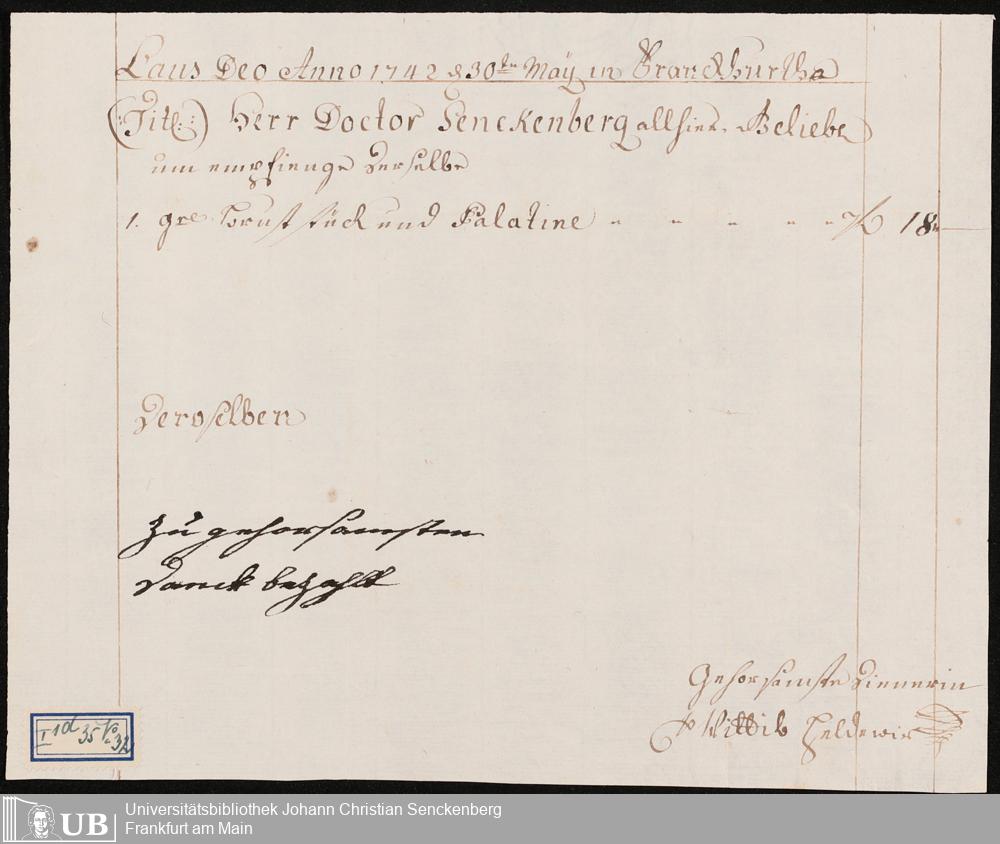 Laus Deo Anno 1742 d 30ten Maÿ in Franckfurth a
(:Titl:) Herr Doctor Senckenberg allhier. Beliebe
um empfienge derselbe
1. gre Brust stück und Palatine - - - - - f 18 -
Deroselben
zu gehorsamsten
Danck bezahlt
Gehorsamste Dienerin
Wittib
I 1d 35 No. 32
UB Universitätsbibliothek Johann Christian Senckenberg
Frankfurt am Main